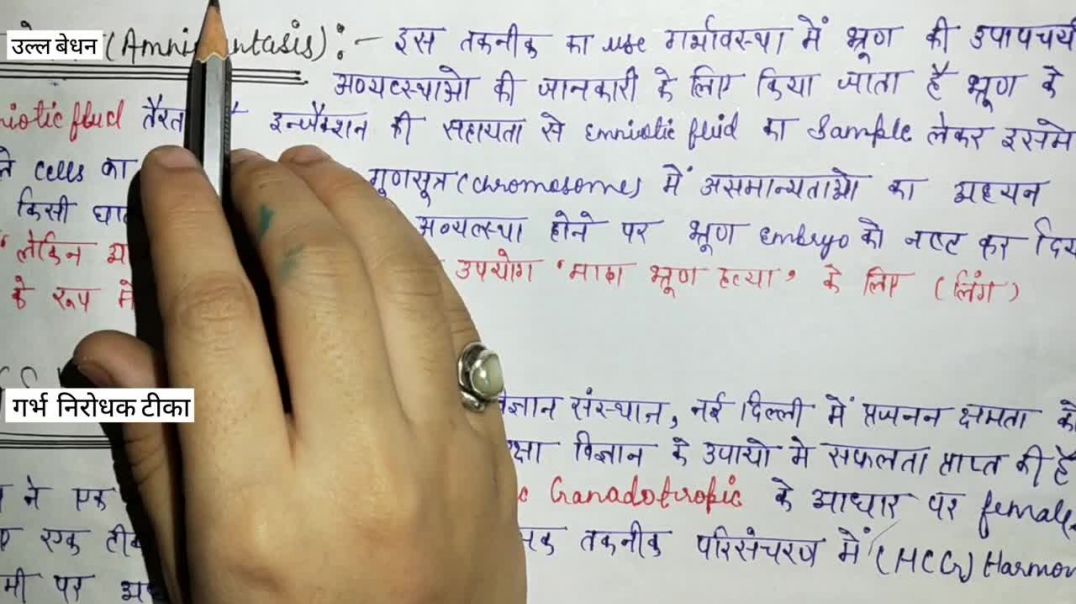 उल्ल बेधन (Amni ntasis) :- इस तकनीक का use गर्भावस्था में भ्रूण की उपापचय
अव्यवस्थाओ की जानकारी के लिए किया जाता है भ्रूण के
iotic fluid तैरता है इन्जैक्शन की सहायता से emniotic fluid का Sample लेकर इसमे
ने cells का गुणसूत्र (chromosomes) में असमान्यताओ का अध्ययन
किसी घा अव्यवस्था होने पर भ्रूण embryo को नष्ट कर दिय
"लेकिन उपयोग 'मादा भ्रूण हत्या' के लिए (लिंग)
के रूप मे
गर्भ निरोधक टीका
विज्ञान संस्थान, नई दिल्ली में प्रजनन क्षमता को
क्षा विज्ञान के उपायो मे सफलता प्राप्त की है
ने एक c Ganadotropic के आधार पर female
एक टी तकनीक परिसंचरण में (HCG) Harmon
पर